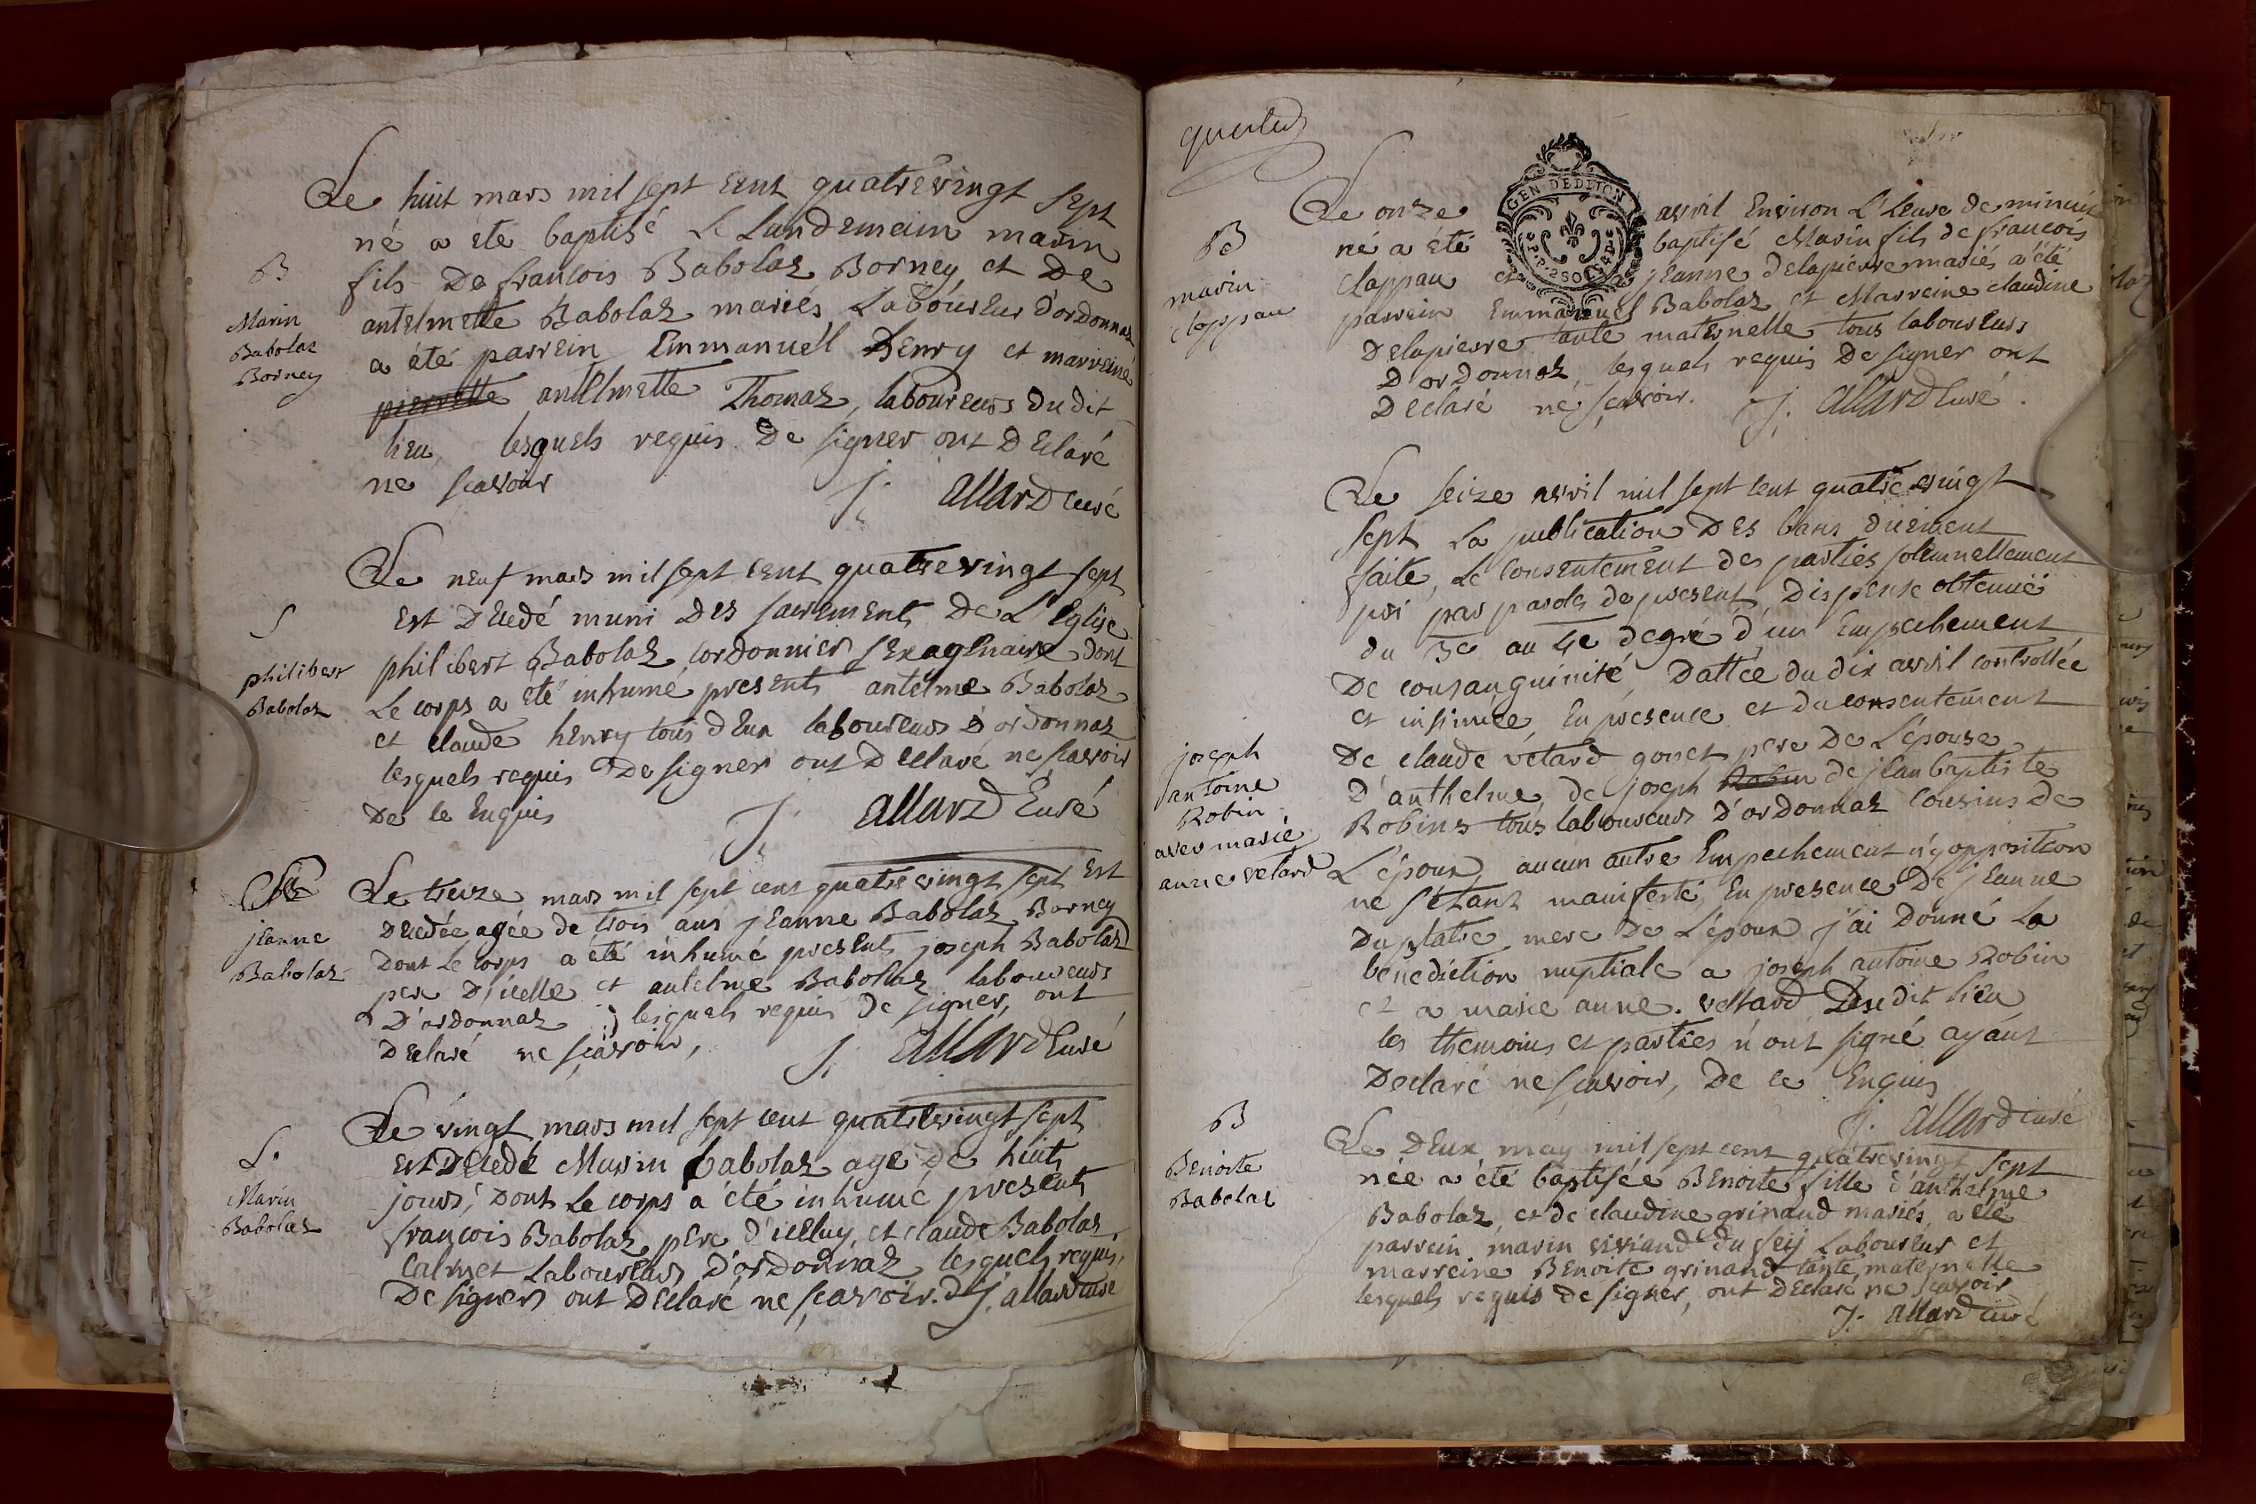 Le huit mars mil sept cent quatrevingt sept
né a été baptisé le Landemain marin
fils De francois Babolaz Borney et De
antelmette Babolaz mariés Laboureur d'ordonnaz
a été parrein Emmanuel henry et marreine
pierrette antelmette Thomaz, laboureurs Du dit
lieu lesquels requis De signer ont Declaré
ne scavoir J. allard curé
B
Marin
Babolaz
Borney
Le neuf mars mil sept cent quatrevingt sept
Est Decedé muni Des sacrements De L'Eglise
philibert Babolaz cordonnier sexagenaire dont
Le corps a eté inhumé presents antelme Babolaz
et claude henry tous deux laboureurs d'ordonnaz
lesquels requis De signer ont Declaré ne scavoir
De ce Enquis J. allard Curé
S
philibert
Babolaz
Le treize mars mil sept cent quatrevingt sept Est
Decedée agée de trois ans jeanne Babolaz Borney
Dont Le corps a été inhumé presents joseph Babolaz
pere D'icelle et antelme Babolaz laboureurs
D'ordonnaz lesquels requis de signer, ont
Declaré ne scavoir, J. allard Curé
jeanne
Babolaz
Le vingt mars mil sept cent quatrevingt sept
est Decedé Marin babolaz age De huit
jours, Dont Le corps a été inhumé presents
francois Babolaz pere d'icelluy, et claude Babolaz
Calmet Laboureurs D'ordonnaz lesquels requis,
De signer ont Declaré ne scavoir. J. allard curé
S.
Marin
Babolaz
GEN. DE DIJON
Le onze avril Environ L'heure de minuit
né a été baptisé Marin fils de francois
Clappau et jeanne delapierre mariés a été
parrein Emmanuel Babolaz et Marreine claudine
Delapierre tante maternelle tous laboureurs
D'ordonnaz, lesquels requis De signer ont
Declaré ne scavoir. J. allard Curé.
B
marin
clappau
Le seize avril mil sept cent quatrevingt
sept La publication Des bans duement
faite, Le consentement des parties solemnellement
pris par paroles de present, Dispense obtenue
du 3e au 4e degré d'un Empechement
De consanguinité, Dattée du dix avril controllée
et insinuée, En presence et du consentement
De claude vetard gonet pere De L'épouse
D'anthelme, de joseph Robin de jean baptiste
Robins tous laboureurs D'ordonnaz cousins de
L'époux, aucun autre Empechement n'y opposition
ne s'étant manifesté, En presence De jeanne
Duplatre mere De L'époux j'ai Donné La
benediction nuptiale a joseph antoine Robin
et a marie anne. vettard Dudit lieu
les themoins et parties n'ont signé ayant
Declaré ne scavoir, De ce Enquis
J. allard curé
joseph
antoine
Robin
avec marie
anne vetard
Le Deux may mil sept cent quatrevingt sept
née a été baptisée Benoite fille d'anthelme
Babolaz, et de claudine grinand mariés, a été
parrein marin viviand du Seij Laboureur et
marreine Benoite grinand tante maternelle
lesquels requis de signer, ont Declaré ne scavoir
J. allard curé
B
Benoite
Babolaz